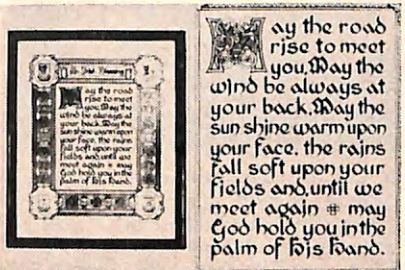 An Irish Blessing
May the road
rise to meet
you. May the
wind be always at
your back. May the
sun shine warm upon
your face, the rains
fall soft upon your
fields and until we
meet again ⁜ may
God hold you in the
palm of his hand.
May the road
rise to meet
you. May the
wind be always at
your back. May the
sun shine warm upon
your face, the rains
fall soft upon your
fields and, until we
meet again ⁜ may
God hold you in the
palm of his hand.